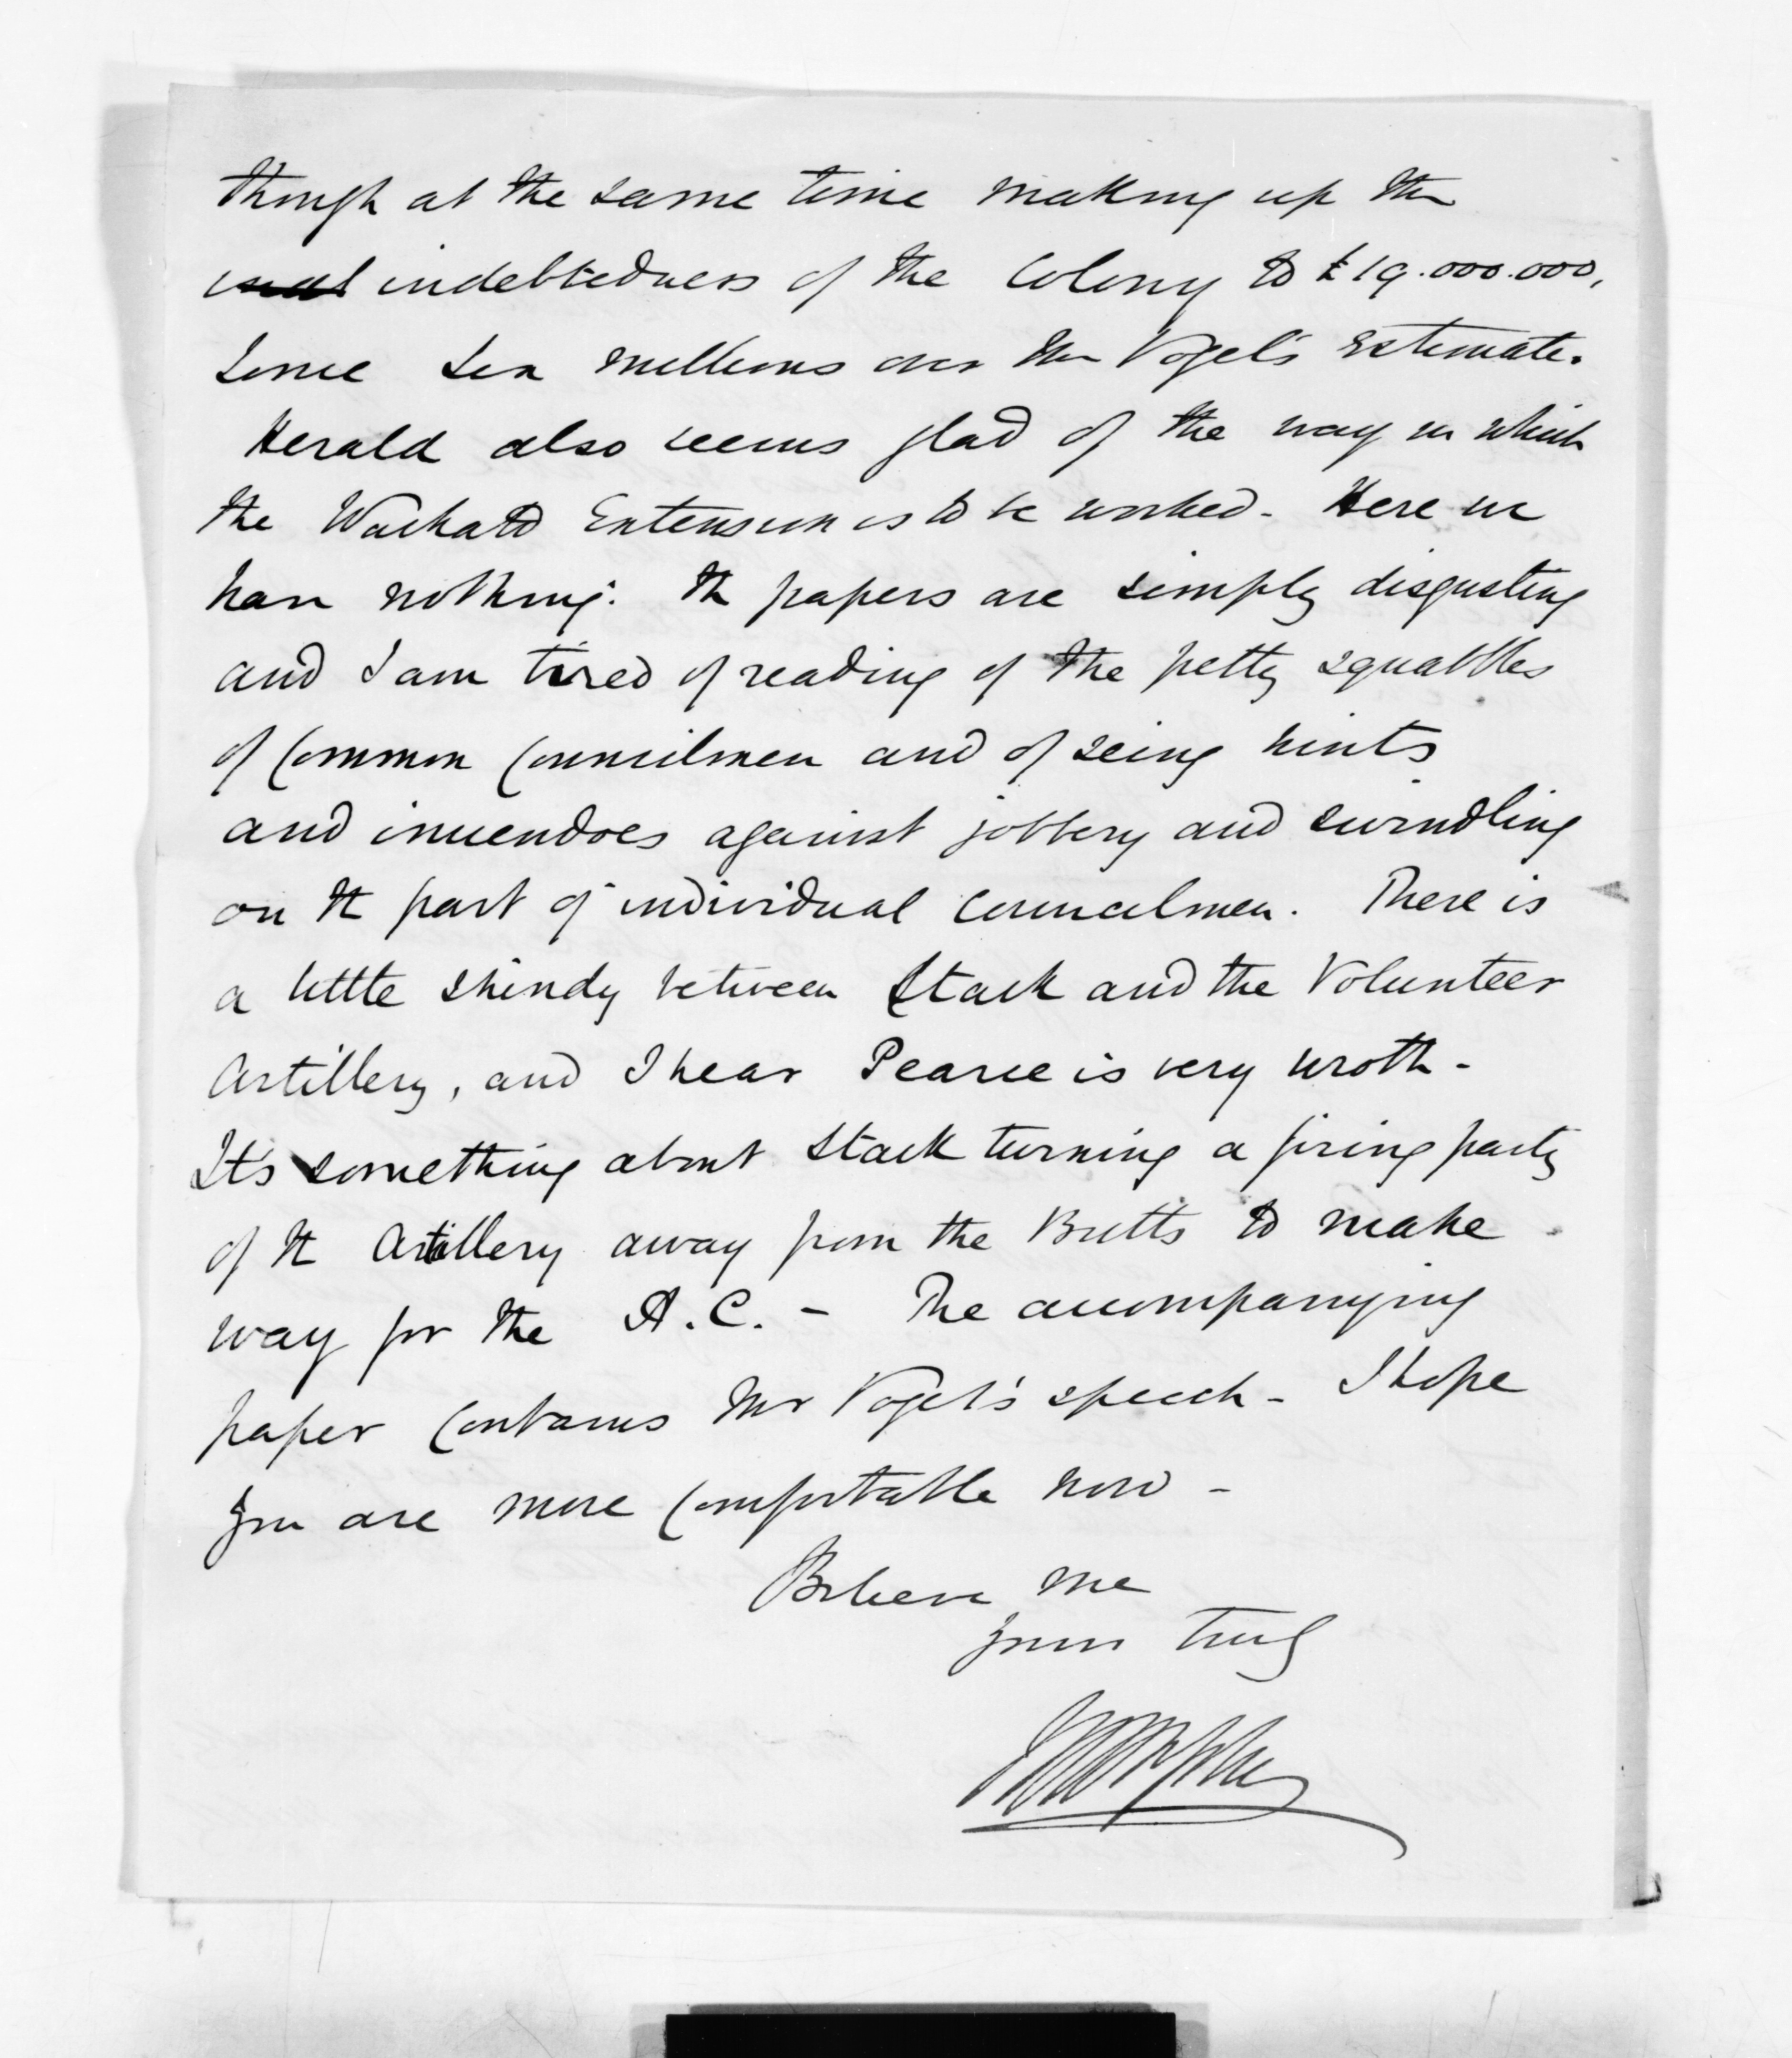 though at the same time making up the
indebtedness of the Colony to £19.000.000,
some six millions over Mr Vogel's Estimate.
Herald also seems glad of the way in which
the Waikato Extension is to be worked - Here we
have nothing. The papers are simply disgusting
and I am tired of reading of the petty squabbles
of Common Councilmen and of seeing hints
and inuendoes against jobbery and swindling
on the part of individual Councilmen. There is
a little shindy between Stack and the Volunteer
Artillery, and I hear Pearce is very wroth -
It's something about Stack turning a firing party
of the Artillery away from the Butts to make
way for the A.C. - The accompanying
paper contains Mr Vogel's speech - I hope
you are more comfortable now -
Believe me
yours truly